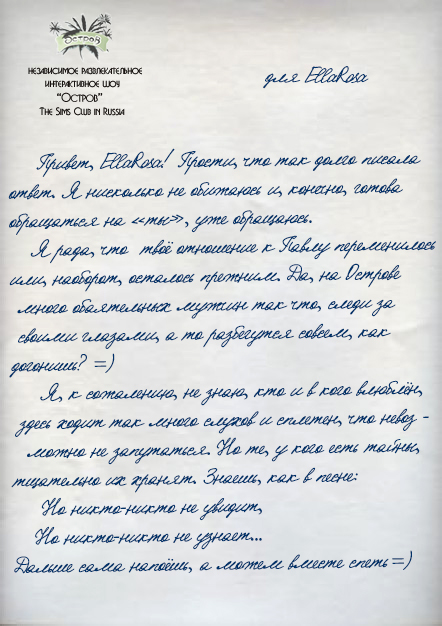 ОСТРОВ
НЕЗАВИСИМОЕ РАЗВЛЕКАТЕЛЬНОЕ
ИНТЕРАКТИВНОЕ ШОУ
"ОСТРОВ"
THE SIMS CLUB IN RUSSIA
для EllaRosa
Привет, EllaRosa! Прости, что так долго писала
ответ. Я нисколько не обижаюсь и, конечно, готова
обращаться на «ты», уже обращаюсь.
Я рада, что твоё отношение к Павлу переменилось
или, наоборот, осталось прежним. Да, на Острове
много обаятельных мужчин так что, следи за
своими глазами, а то разбегутся совсем, как
догонишь? =)
Я, к сожалению, не знаю, кто и в кого влюблён,
здесь ходит так много слухов и сплетен, что невоз-
можно не запутаться. Но те, у кого есть тайны,
тщательно их хранят. Знаешь, как в песне:
Но никто-никто не увидит,
Но никто-никто не узнает...
Дальше сама напоёшь, а можем вместе спеть =)